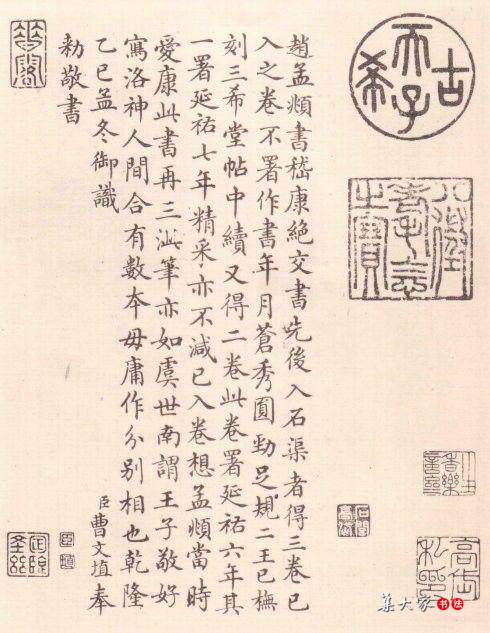 古希天子
八徵耄念之寶
趙孟頫書嵇康絕交書先後入石渠者得三卷已
入之卷不署作書年月蒼秀圓勁足規二王已橅
刻三希堂帖中續又得二卷此卷署延祐六年其
一署延祐七年精采亦不減已入卷想孟頫當時
愛康此書再三泚筆亦如虞世南謂王子敬好
寫洛神人間合有數本毋庸作分別相也乾隆
乙巳孟冬御識 臣曹文埴奉
勅敬書
集大家书法